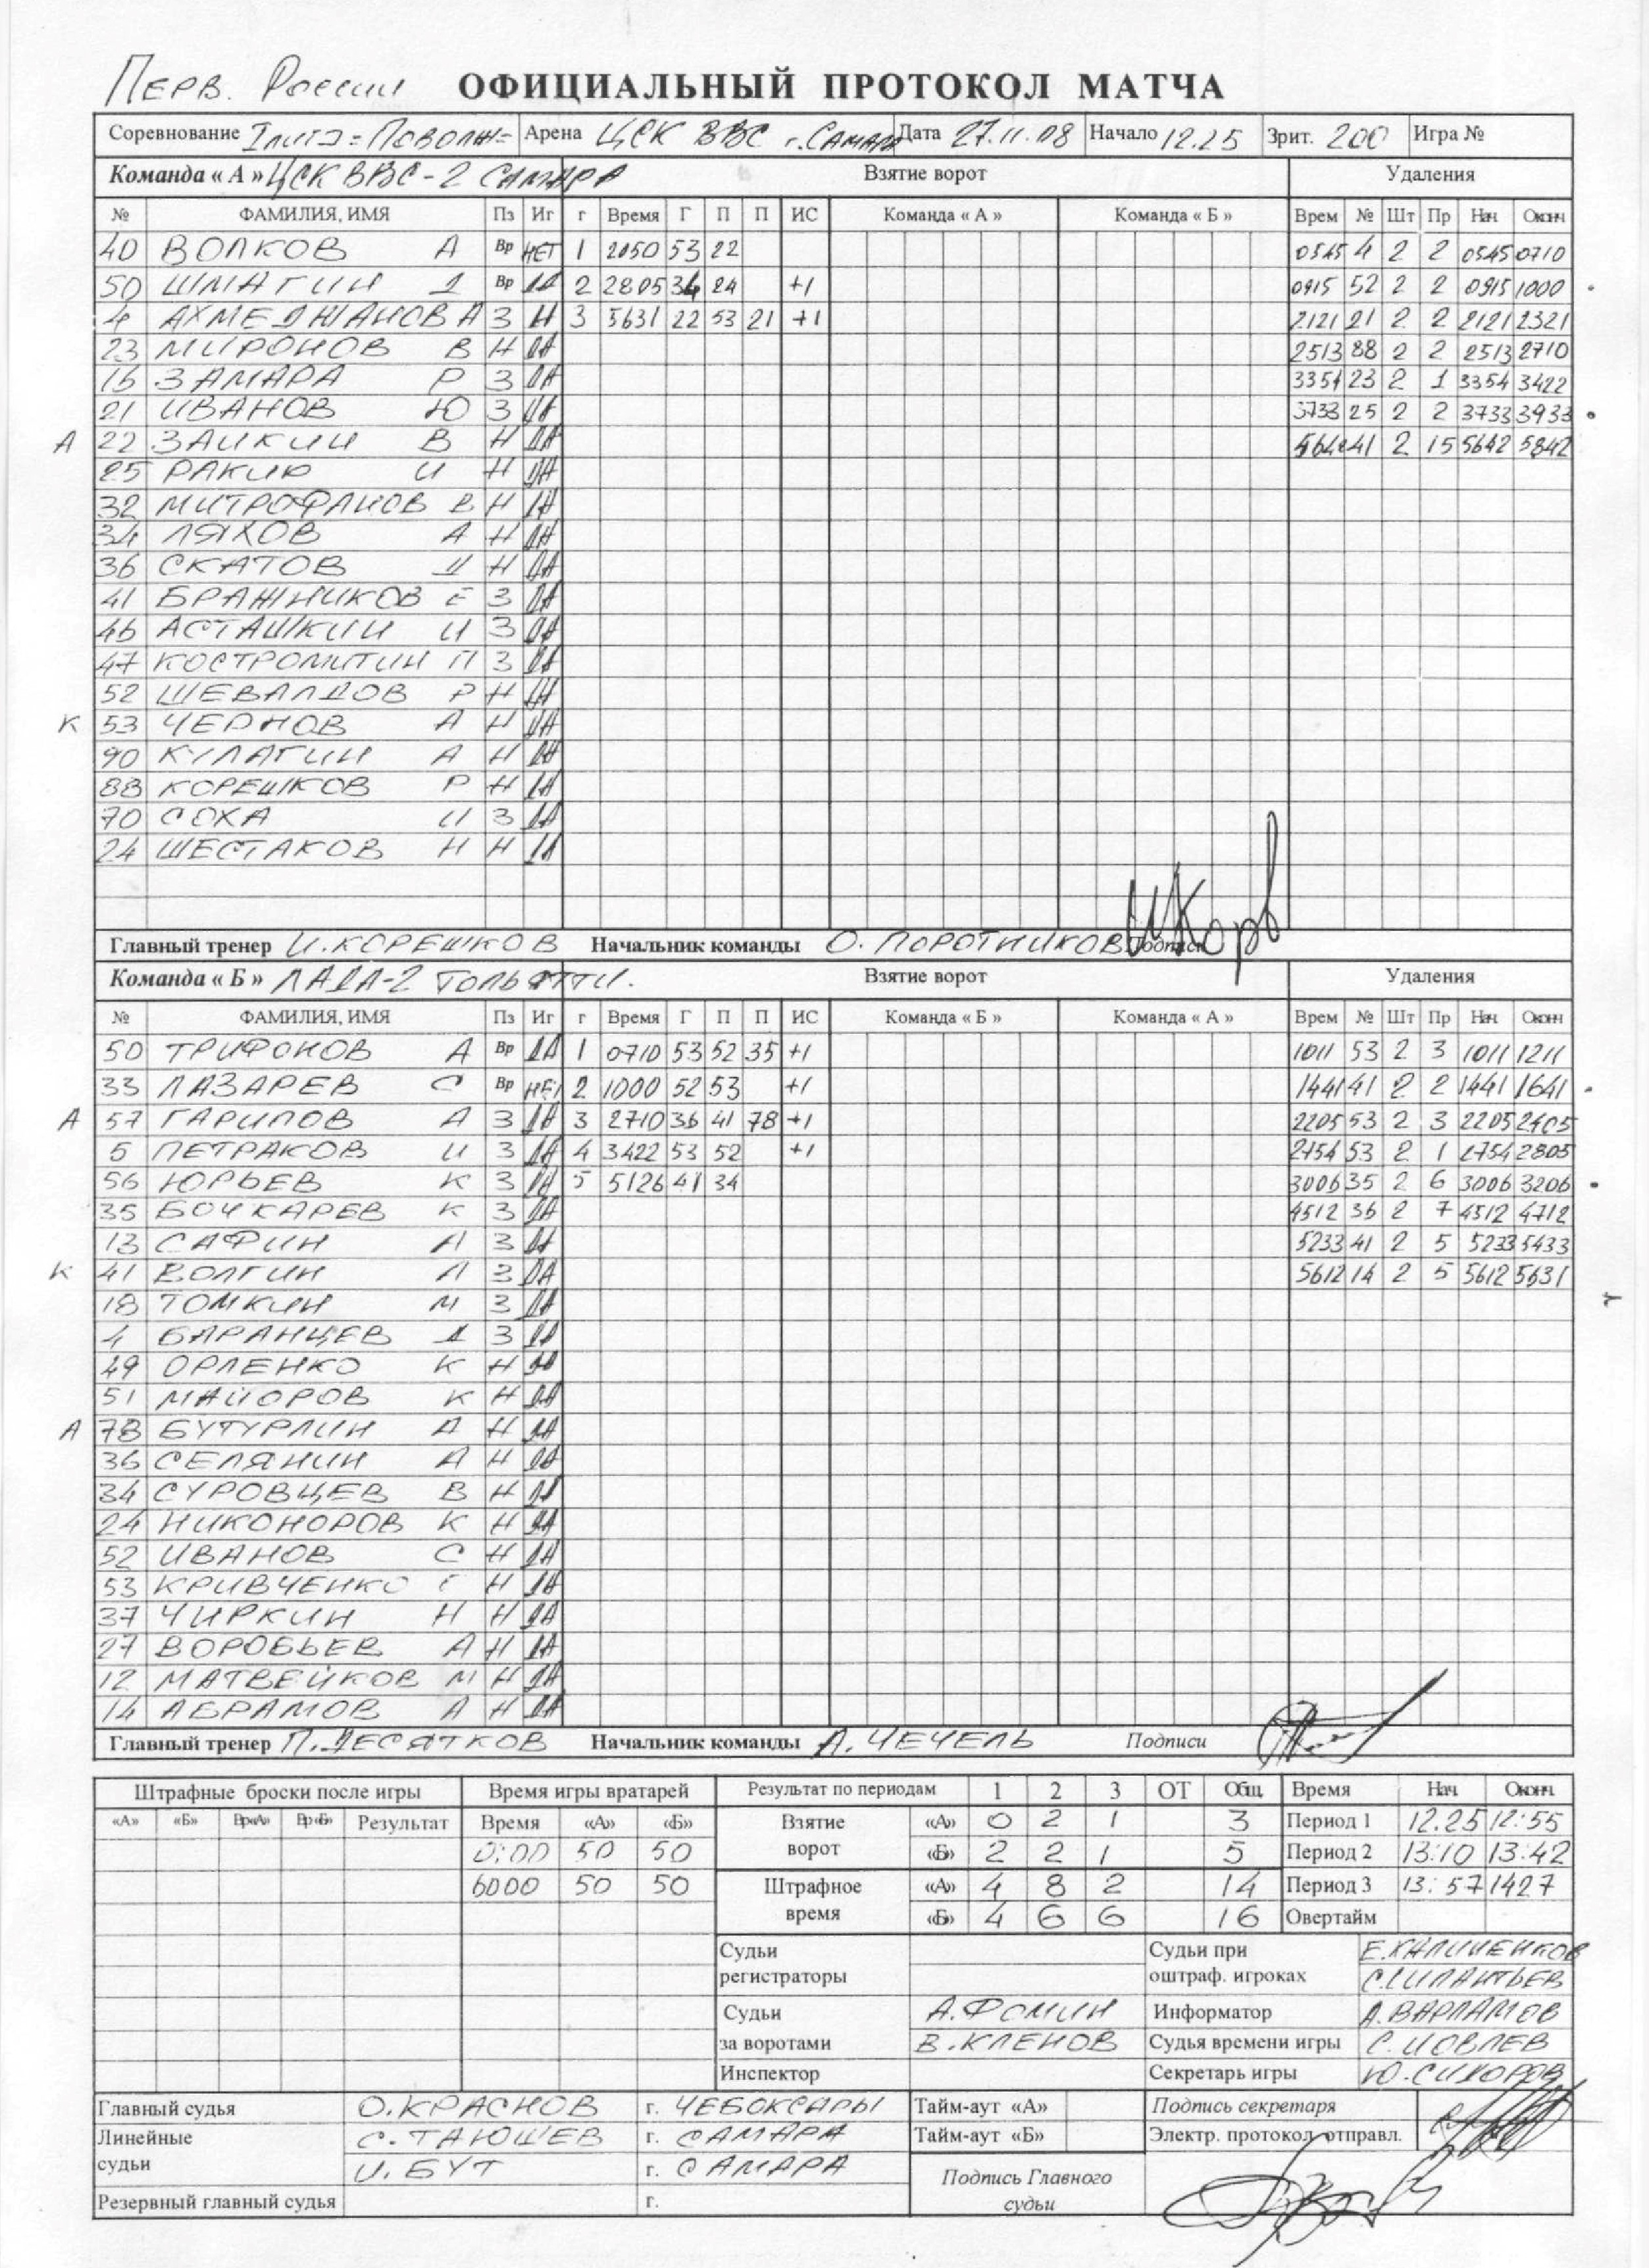 Перв. России ОФИЦИАЛЬНЫЙ ПРОТОКОЛ МАТЧА
Соревнование Арена ЦСК ВВС г. Самара Дата 27.11.08 Начало 12.25 Зрит. 200 Игра №
Команда « А » ЦСК ВВС-2 САМАРА Взятие ворот Удаления
№ ФАМИЛИЯ, ИМЯ Пз Иг г Время Г П П ИС Команда « А » Команда « Б » Врем № Шт Пр Нач Оконч
40 ВОЛКОВ А Вр НЕТ 1 2050 53 22 0545 4 2 2 0545 0710
50 ШМАГИН Д Вр ДА 2 2805 34 24 +1 0915 52 2 2 0915 1000
4 АХМЕДЖАНОВ А З Н 3 5631 22 53 21 +1 2121 21 2 2 2121 2321
23 МИРОНОВ В Н ДА 2513 88 2 2 2513 2710
16 ЗАМАРА Р З ДА 3354 23 2 1 3354 3422
21 ИВАНОВ Ю З ДА 3733 25 2 2 3733 3933
А 22 ЗАИКИН В Н ДА 5642 41 2 15 5642 5842
25 РАКИР И Н ДА
32 МИТРОФАНОВ В Н ДА
34 ЛЯХОВ А Н ДА
36 СКАТОВ Д Н ДА
41 БРАЖНИКОВ Е З ДА
46 АСТАШКИН И З ДА
47 КОСТРОМИТИН П З ДА
52 ШЕВАЛДОВ Р Н ДА
К 53 ЧЕРНОВ А Н ДА
90 КУЛАГИН А Н ДА
88 КОРЕШКОВ Р Н ДА
70 СОХА И З ДА
24 ШЕСТАКОВ Н Н ДА
Главный тренер И. КОРЕШКОВ Начальник команды О. ПОРОТНИКОВ Подписи
Команда « Б » ЛАДА-2 ТОЛЬЯТТИ. Взятие ворот Удаления
№ ФАМИЛИЯ, ИМЯ Пз Иг г Время Г П П ИС Команда « Б » Команда « А » Врем № Шт Пр Нач Оконч
50 ТРИФОНОВ А Вр ДА 1 0710 53 52 35 +1 1011 53 2 3 1011 1211
33 ЛАЗАРЕВ С Вр НЕТ 2 1000 52 53 +1 1441 41 2 2 1441 1641
А 57 ГАРИПОВ А З ДА 3 2710 36 41 78 +1 2205 53 2 3 2205 2405
5 ПЕТРАКОВ И З ДА 4 3422 53 52 +1 2754 53 2 1 2754 2805
56 ЮРЬЕВ К З ДА 5 5126 41 34 3006 35 2 6 3006 3206
35 БОЧКАРЕВ К З ДА 4512 36 2 7 4512 4712
13 САФИН А З ДА 5233 41 2 5 5233 5433
К 41 ВОЛГИН А З ДА 5612 14 2 5 5612 5631
18 ТОМКИН М З ДА
4 БАРАНЦЕВ Д З ДА
49 ОРЛЕНКО К Н ДА
51 МАЙОРОВ К Н ДА
А 78 БУТУРЛИН А Н ДА
36 СЕЛЯНИН А Н ДА
34 СУРОВЦЕВ В Н ДА
24 НИКОНОРОВ К Н ДА
52 ИВАНОВ С Н ДА
53 КРИВЧЕНКО Н ДА
37 ЧИРКИН Н Н ДА
27 ВОРОБЬЕВ А Н ДА
12 МАТВЕЙКОВ М Н ДА
14 АБРАМОВ А Н ДА
Главный тренер П. ДЕСЯТКОВ Начальник команды А. ЧЕЧЕЛЬ Подписи
Штрафные броски после игры Время игры вратарей Результат по периодам 1 2 3 ОТ Общ. Время Нач. Оконч.
«А» «Б» Вр«А» Вр«Б» Результат Время «А» «Б» Взятие ворот «А» 0 2 1 3 Период 1 12.25 12:55
0:00 50 50 «Б» 2 2 1 5 Период 2 13:10 13:42
6000 50 50 Штрафное время «А» 4 8 2 14 Период 3 13:57 1427
«Б» 4 6 6 16 Овертайм
Судьи регистраторы Судьи при оштраф. игроках Е. КАЛИНЕНКОВ
С. СИЛАНТЬЕВ
Судьи за воротами А. ФОМИН Информатор А. ВАРЛАМОВ
В. КЛЕНОВ Судья времени игры С. ИОВЛЕВ
Инспектор Секретарь игры Ю. СИДОРОВ
Главный судья О. КРАСНОВ г. ЧЕБОКСАРЫ Тайм-аут «А» Подпись секретаря
Линейные судьи С. ТАЮШЕВ г. САМАРА Тайм-аут «Б» Электр. протокол отправл.
И. БУТ г. САМАРА Подпись Главного судьи
Резервный главный судья г.